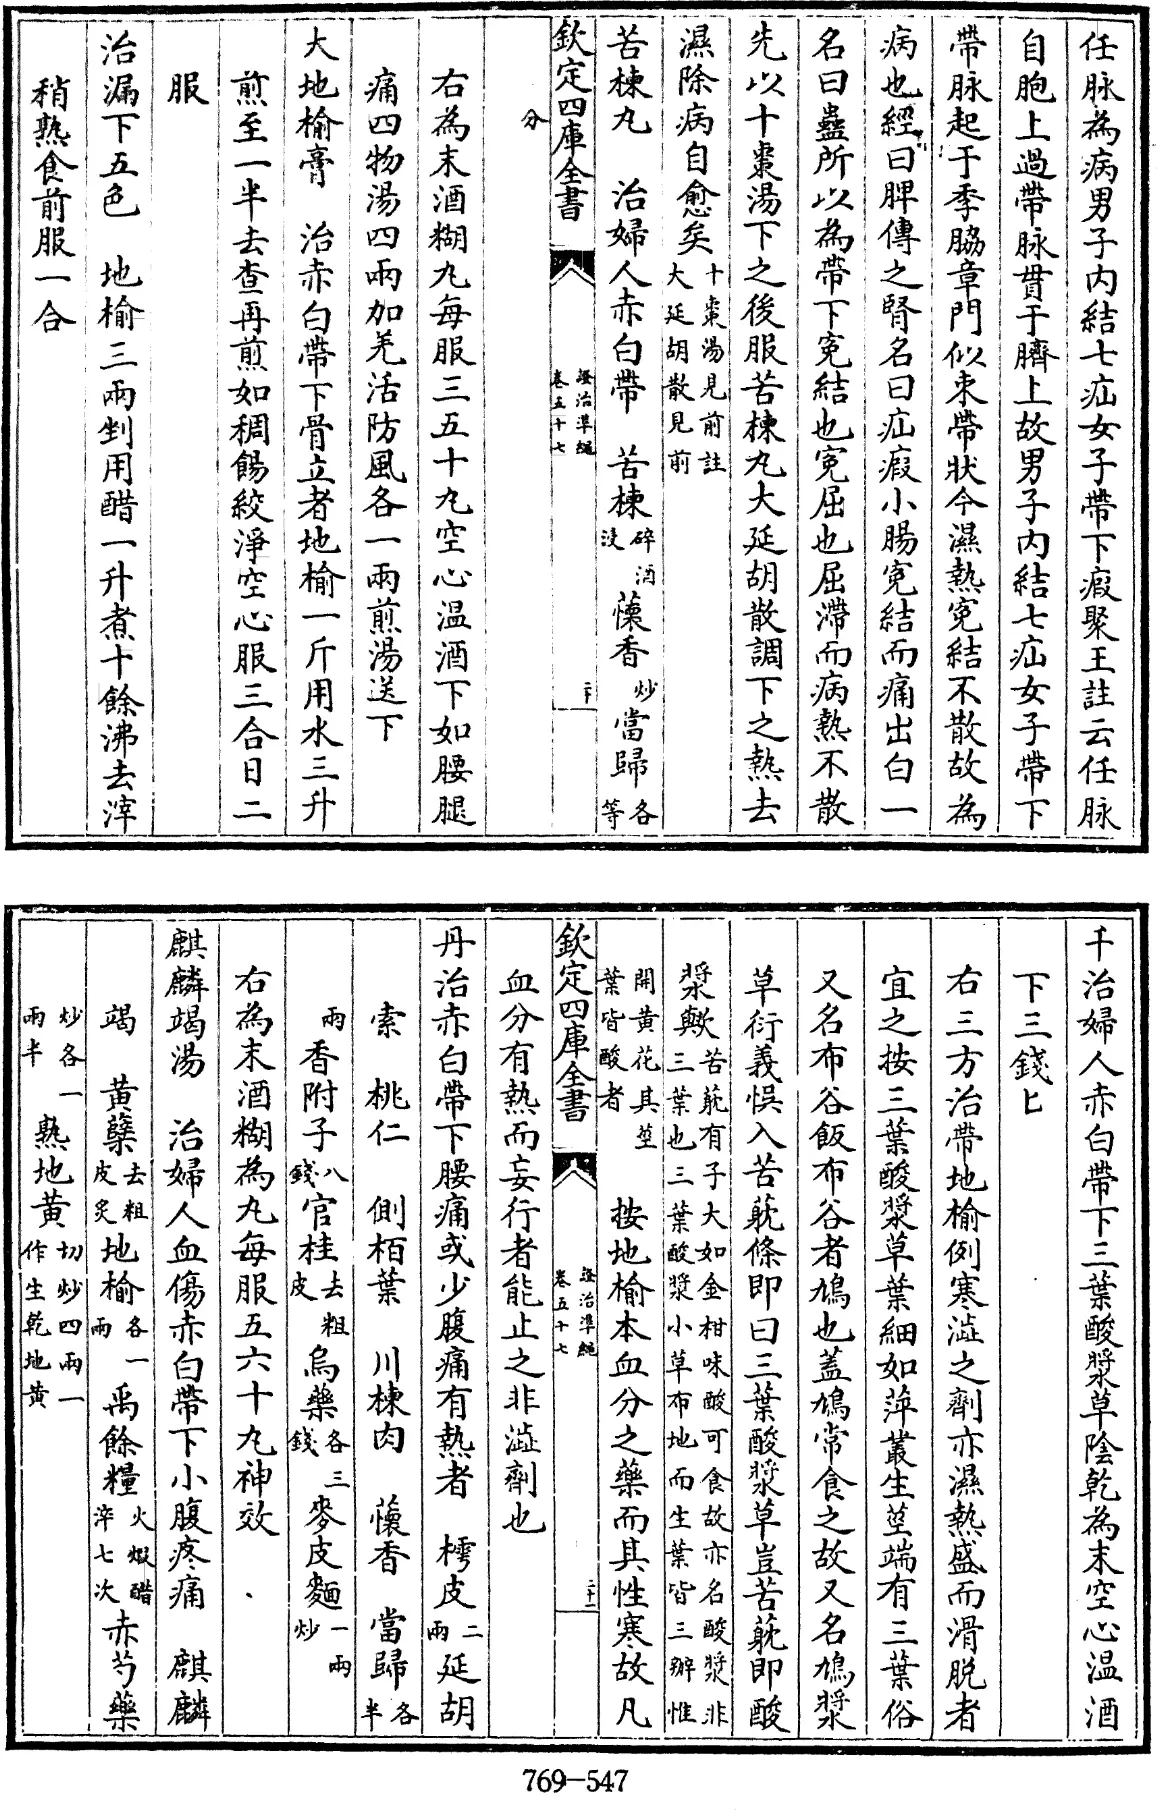 任脉為病男子内結七疝女子帶下瘕聚王註云任脉
自胞上過帶脉貫于臍上故男子内結七疝女子帶下
帶脉起于季脇章門似束帶狀今濕熱寃結不散故為
病也經曰脾傳之腎名曰疝瘕小腸寃結而痛出白一
名曰蠱所以為帶下寃結也寃屈也屈滯而病熱不散
先以十棗湯下之後服苦楝丸大延胡散調下之熱去
濕除病自愈矣十棗湯見前註大延胡散見前
苦楝丸 治婦人赤白帶 苦楝碎酒浸懷香炒當歸各等
欽定四庫全書 證治準繩卷五十七 二十
分
右為末酒糊丸每服三五十丸空心温酒下如腰腿
痛四物湯四兩加羌活防風各一兩煎湯送下
大地榆膏 治赤白帶下骨立者地榆一斤用水三升
煎至一半去查再煎如稠餳絞淨空心服三合日二
服
治漏下五色 地榆三兩剉用醋一升煮十餘沸去滓
稍熱食前服一合
千治婦人赤白帶下三葉酸漿草陰乾為末空心温酒
下三錢匕
右三方治帶地榆例寒澁之劑亦濕熱盛而滑脱者
宜之按三葉酸漿草葉細如萍叢生莖端有三葉俗
又名布谷飯布谷者鳩也蓋鳩常食之故又名鳩漿
草衍義悮入苦躭條即曰三葉酸漿草豈苦躭即酸
漿歟苦躭有子大如金柑味酸可食故亦名酸漿非三葉也三葉酸漿小草布地而生葉皆三瓣惟
開黄花其莖葉皆酸者 按地榆本血分之藥而其性寒故凡
欽定四庫全書 證治準繩卷五十七 二十一
血分有熱而妄行者能止之非澁劑也
丹治赤白帶下腰痛或少腹痛有熱者 樗皮二兩延胡
索 桃仁 側栢葉 川楝肉 懷香 當歸各半
兩香附子八錢官桂去粗皮烏藥各三錢麥皮麵一兩炒
右為末酒糊為丸每服五六十丸神效
麒麟竭湯 治婦人血傷赤白帶下小腹疼痛 麒麟
竭 黄蘗去粗皮炙地榆各一兩禹餘糧火煅醋淬七次赤芍藥
炒各一兩半熟地黄切炒四兩一作生乾地黄
769-547